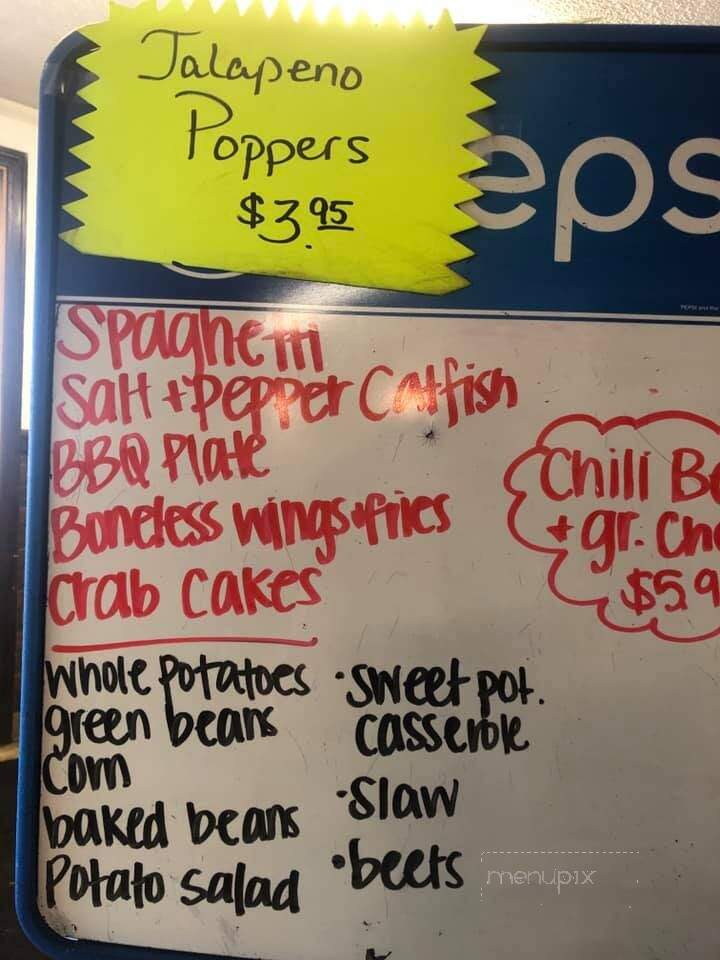 Jalapeno
Poppers
$3.95
eps
Spaghetti
Salt + Pepper Catfish
BBQ Plate
Boneless wings + fries
Crab Cakes
Chili Be
+ gr. Che
$5.9
whole potatoes
green beans
corn
baked beans
Potato salad
·sweet pot.
casserole
·slaw
·beets
menupix